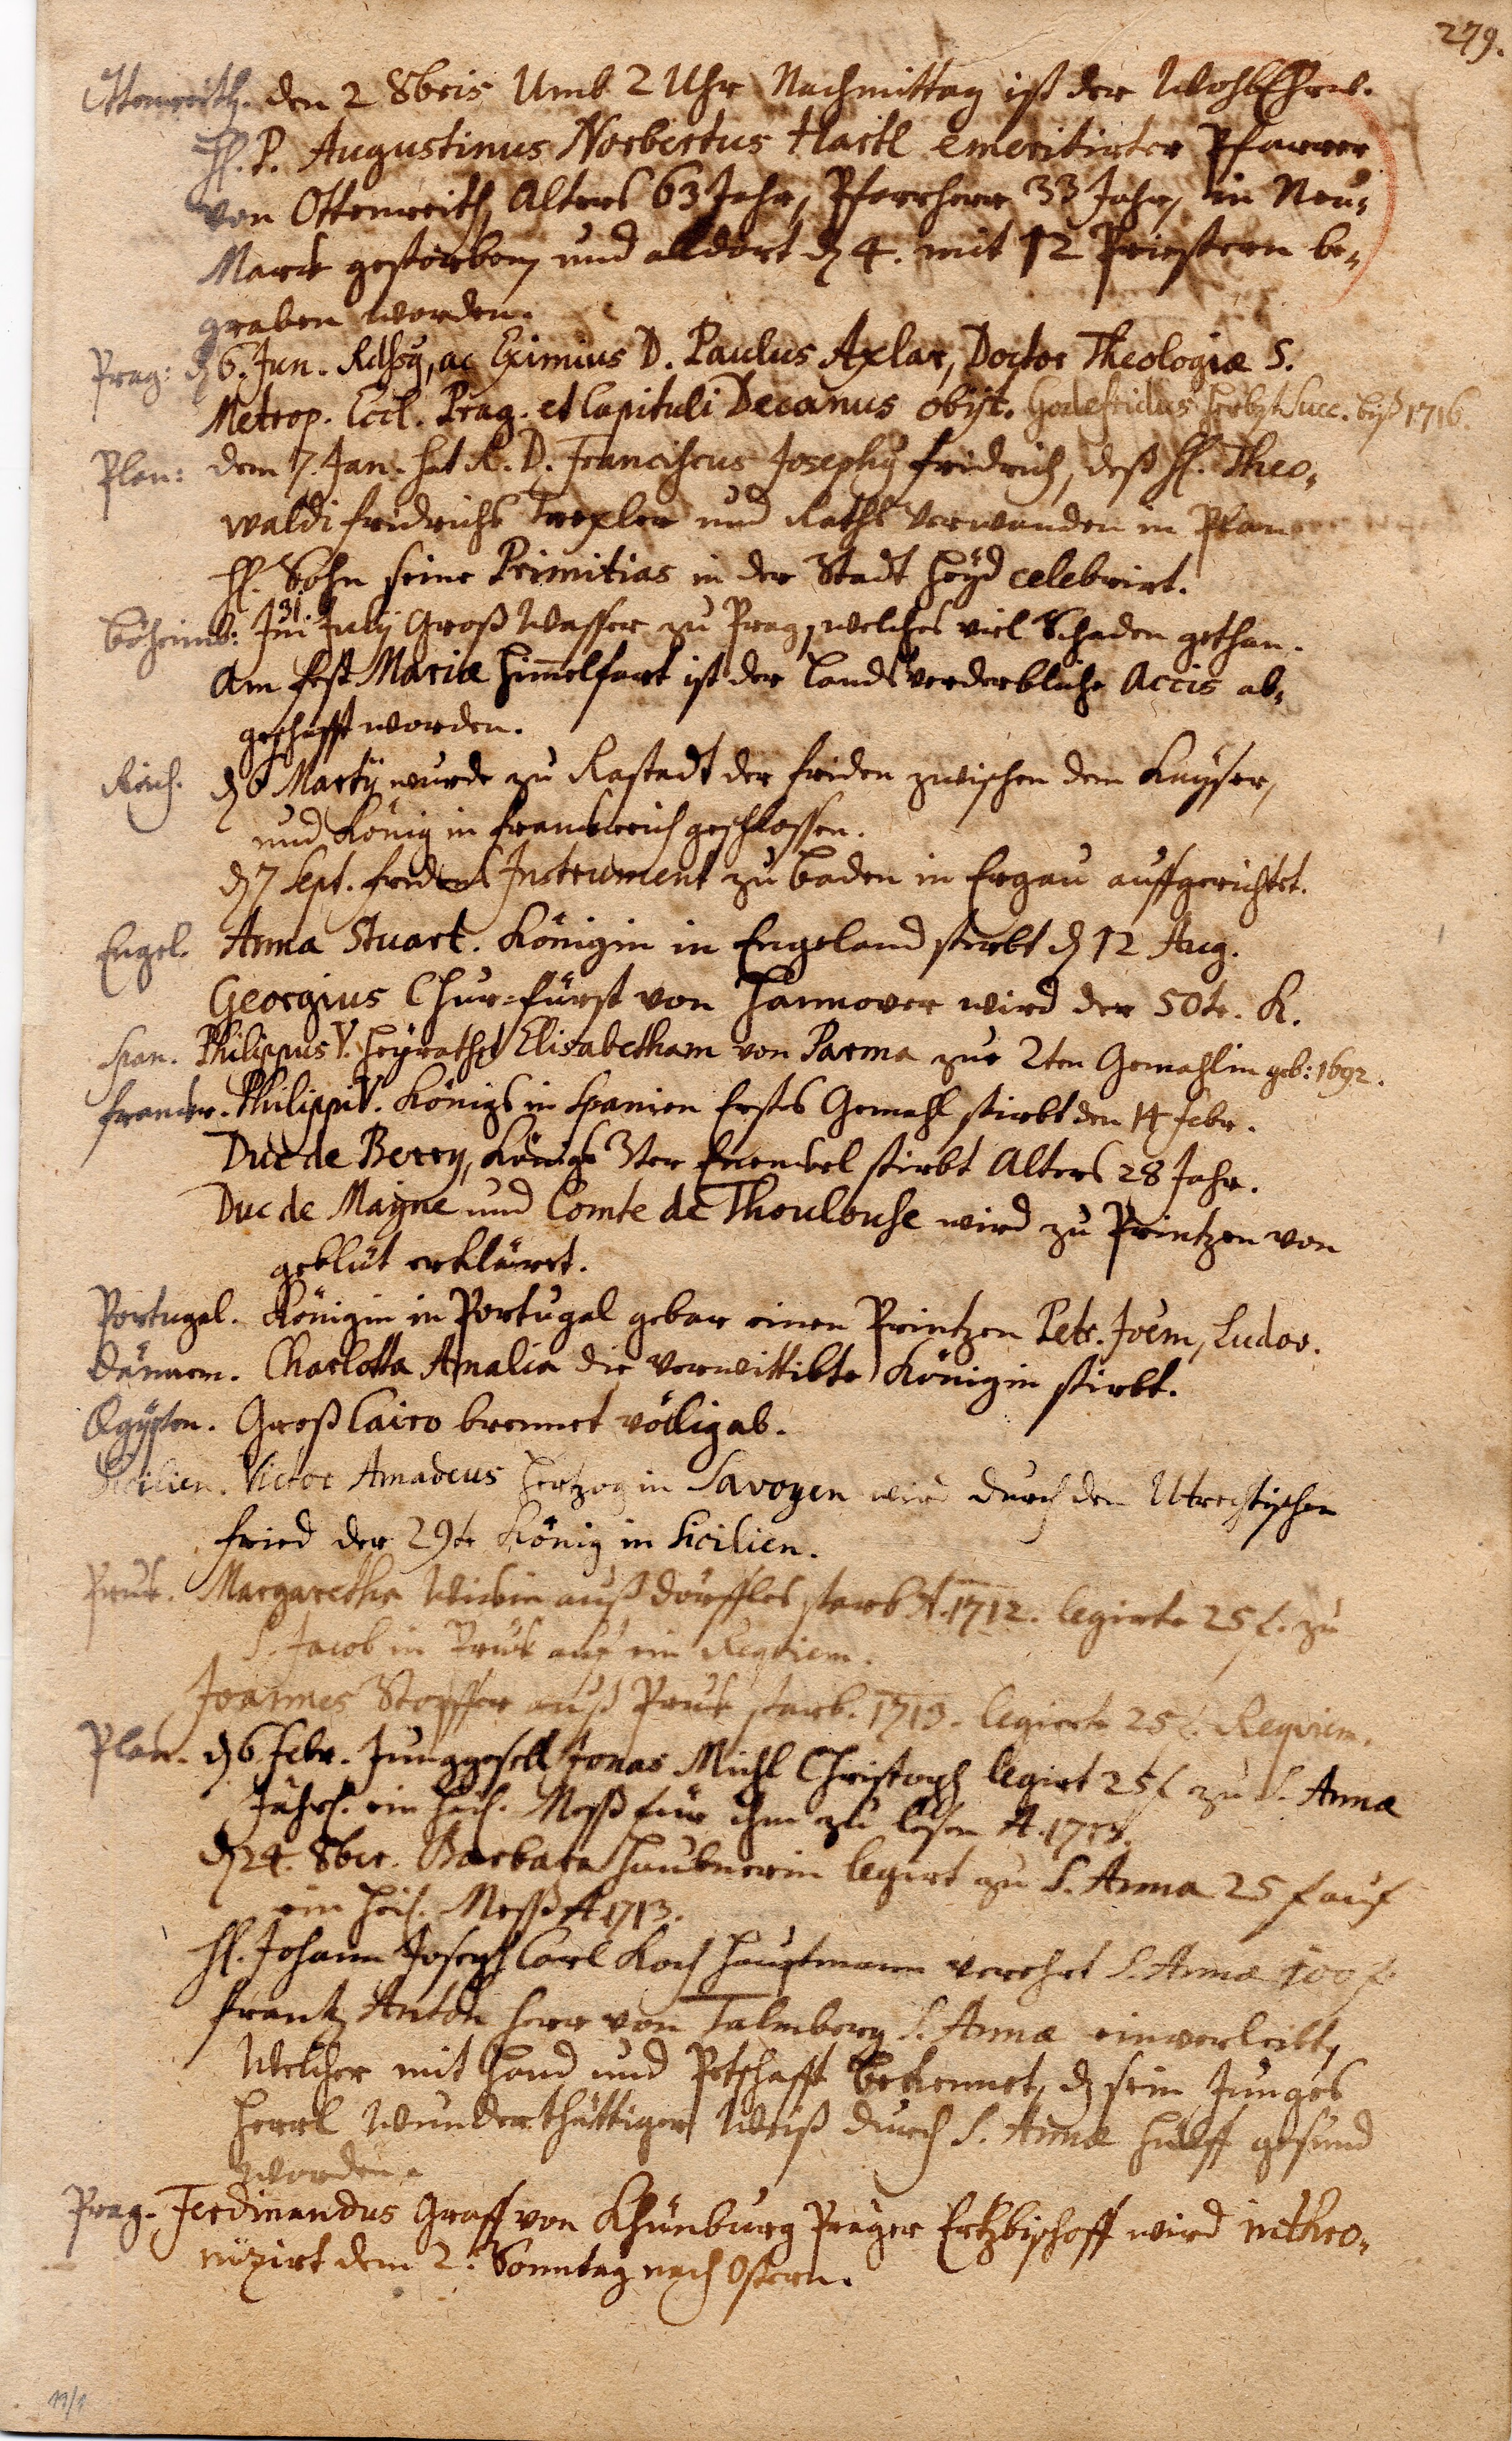 279.
Ottenreith. den 2 8bris Umb 2 Uhr Nachmittag ist der WohlEhrw.
H. P. Augustinus Norbertus Hartl emeritirter Pfarrer
von Ottenreith, Alters 63 Jahr, Pfarrherr 33 Jahr, in Neu-
Marck gestorben, und alldort d 4. mit 12 Priestern be-
graben worden.
Prag: d 6. Jun. Rdsg, ac Eximius D. Paulus Axlar, Doctor Theologiæ S.
Metrop. Eccl. Prag. et Capituli Decanus obijt. Godefridus Succ. biß 1716.
Plan: dem 7. Jan. hat R. D. Franciscus Josephg fridrich, deß H. Theo-
waldi fridrichs Drexler und Raths Verwanden in Plan
H. Sohn seine Primitias in der Stadt Heyd celebrirt.
31
Böheimb: Im July Groß Wasser zu Prag, welches viel Schaden gethan.
Am fest Mariæ Himelfart ist der Lands verderbliche Accis ab-
geschafft worden.
Reich. d 6 Martij wurde zu Rastadt der friden zwischen dem Kayser,
und König in franckreich geschlossen.
d 7 Sept. fridens Instrument zu Baden in Ergau auffgerichtet.
Engel. Anna Stuart. Königin in Engeland stirbt d 12 Aug.
Georgius Chur-fürst von Hannover wird der 50te. K.
Span. Philippus V. heyrathet Elisabetham von Parma zur 2ten Gemahlin geb: 1692.
franckr. Philippi V. Königs in Spanien Erstes Gemahl stirbt den 14 febr.
Duc de Berry, Königs 3ter Enenckel stirbt Alters 28 Jahr.
Duc de Mayne und Comte de Thoulouse wird zu Printzen von
geblüt erkläret.
Portugal. Königin in Portugal gebar einen Printzen Petr. Joem, Ludov.
Dänem. Charlotta Amalia die verwittibte Königin stirbt.
Ægypten. Groß Cairo brennet völlig ab.
Sicilien. Victor Amadeus Hertzog in Savoyen wird durch den Utrechtischen
fried der 29te König in Sicilien.
Pruk. Margaretha auß Dörffles starb A. 1712. legirte 25 f. zu
S. Jacob in Pruk auf ein Requiem.
Joannes Stopffer auß Pruk starb. 1713. legirte 25 f. Requiem.
Plan. d 6 febr. Junggesell Jonas Michl Christoph legirt 25 f zu S. Anna
Jährl. ein heil. Mess für ihn zu lesen A. 1713.
d 24. 8br. Barbara Haubnerin legirt zu S. Anna 25 f auf
ein heil. Mess A 1713.
H. Johann Joseph Carl Koch Hauptmann verehrt S. Annæ 100 f.
Frantz Anton Herr von Talmberg S. Annæ einverleibt,
Welcher mit Hand und Petschafft bekennet, d sein Junges
Herrl Wunderthättiger Weiß durch S. Annæ Hülff gesund
worden.
Prag. Ferdinandus Graff von Khünburg Prager Ertzbischoff wird inthro-
nizirt dem 2. Sonntag nach Ostern.